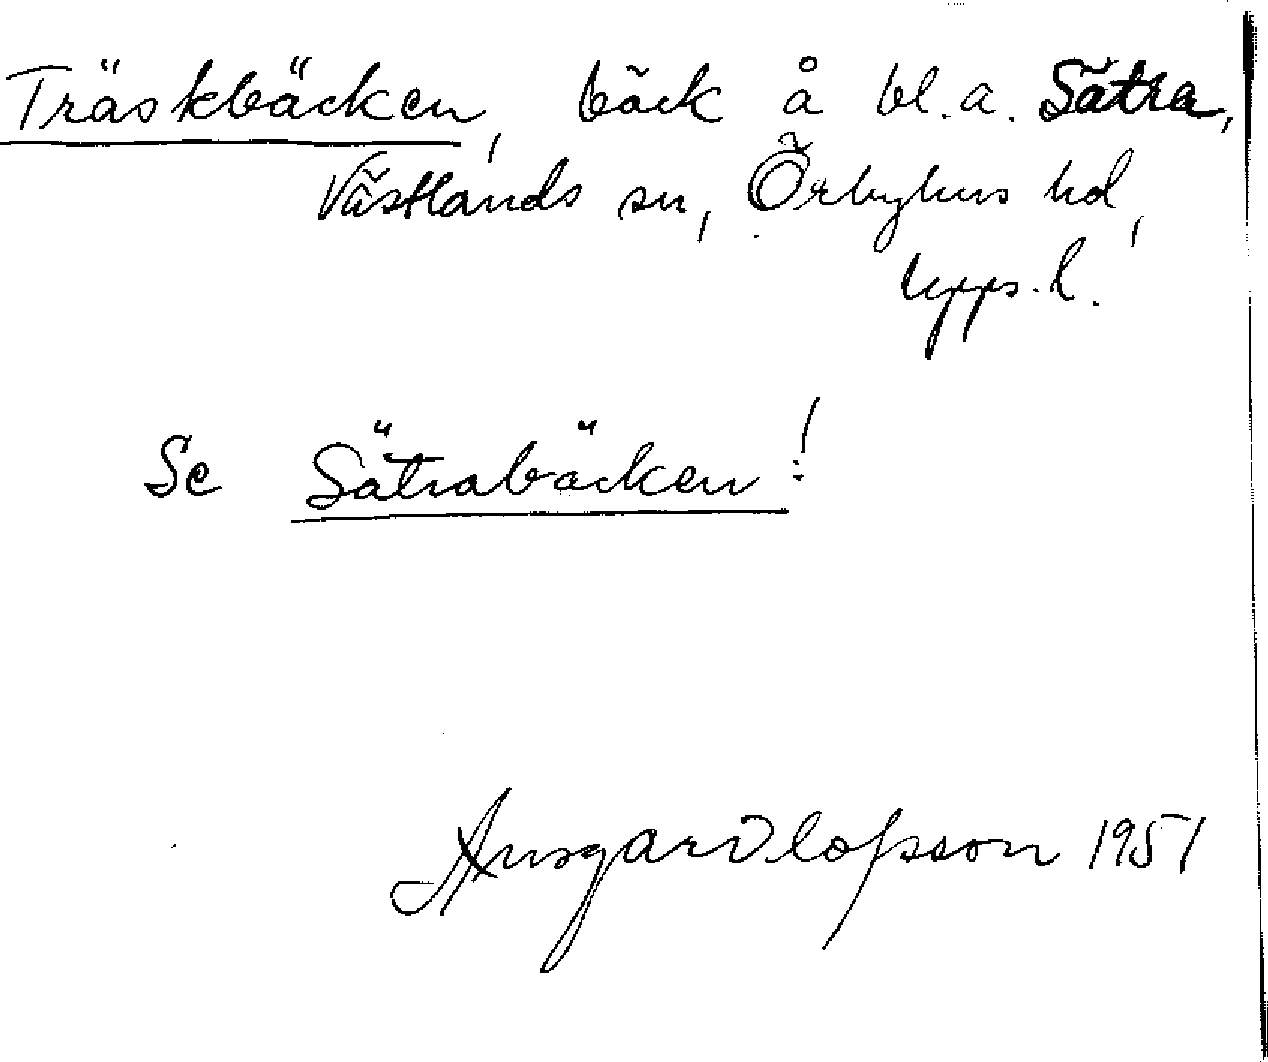 Träskbäcken, bäck å bl.a. Sätra,
Västlands sn, Örbyhus hd,
Upps. l.
Se Sätrabäcken!
Ansgar Olofsson 1951